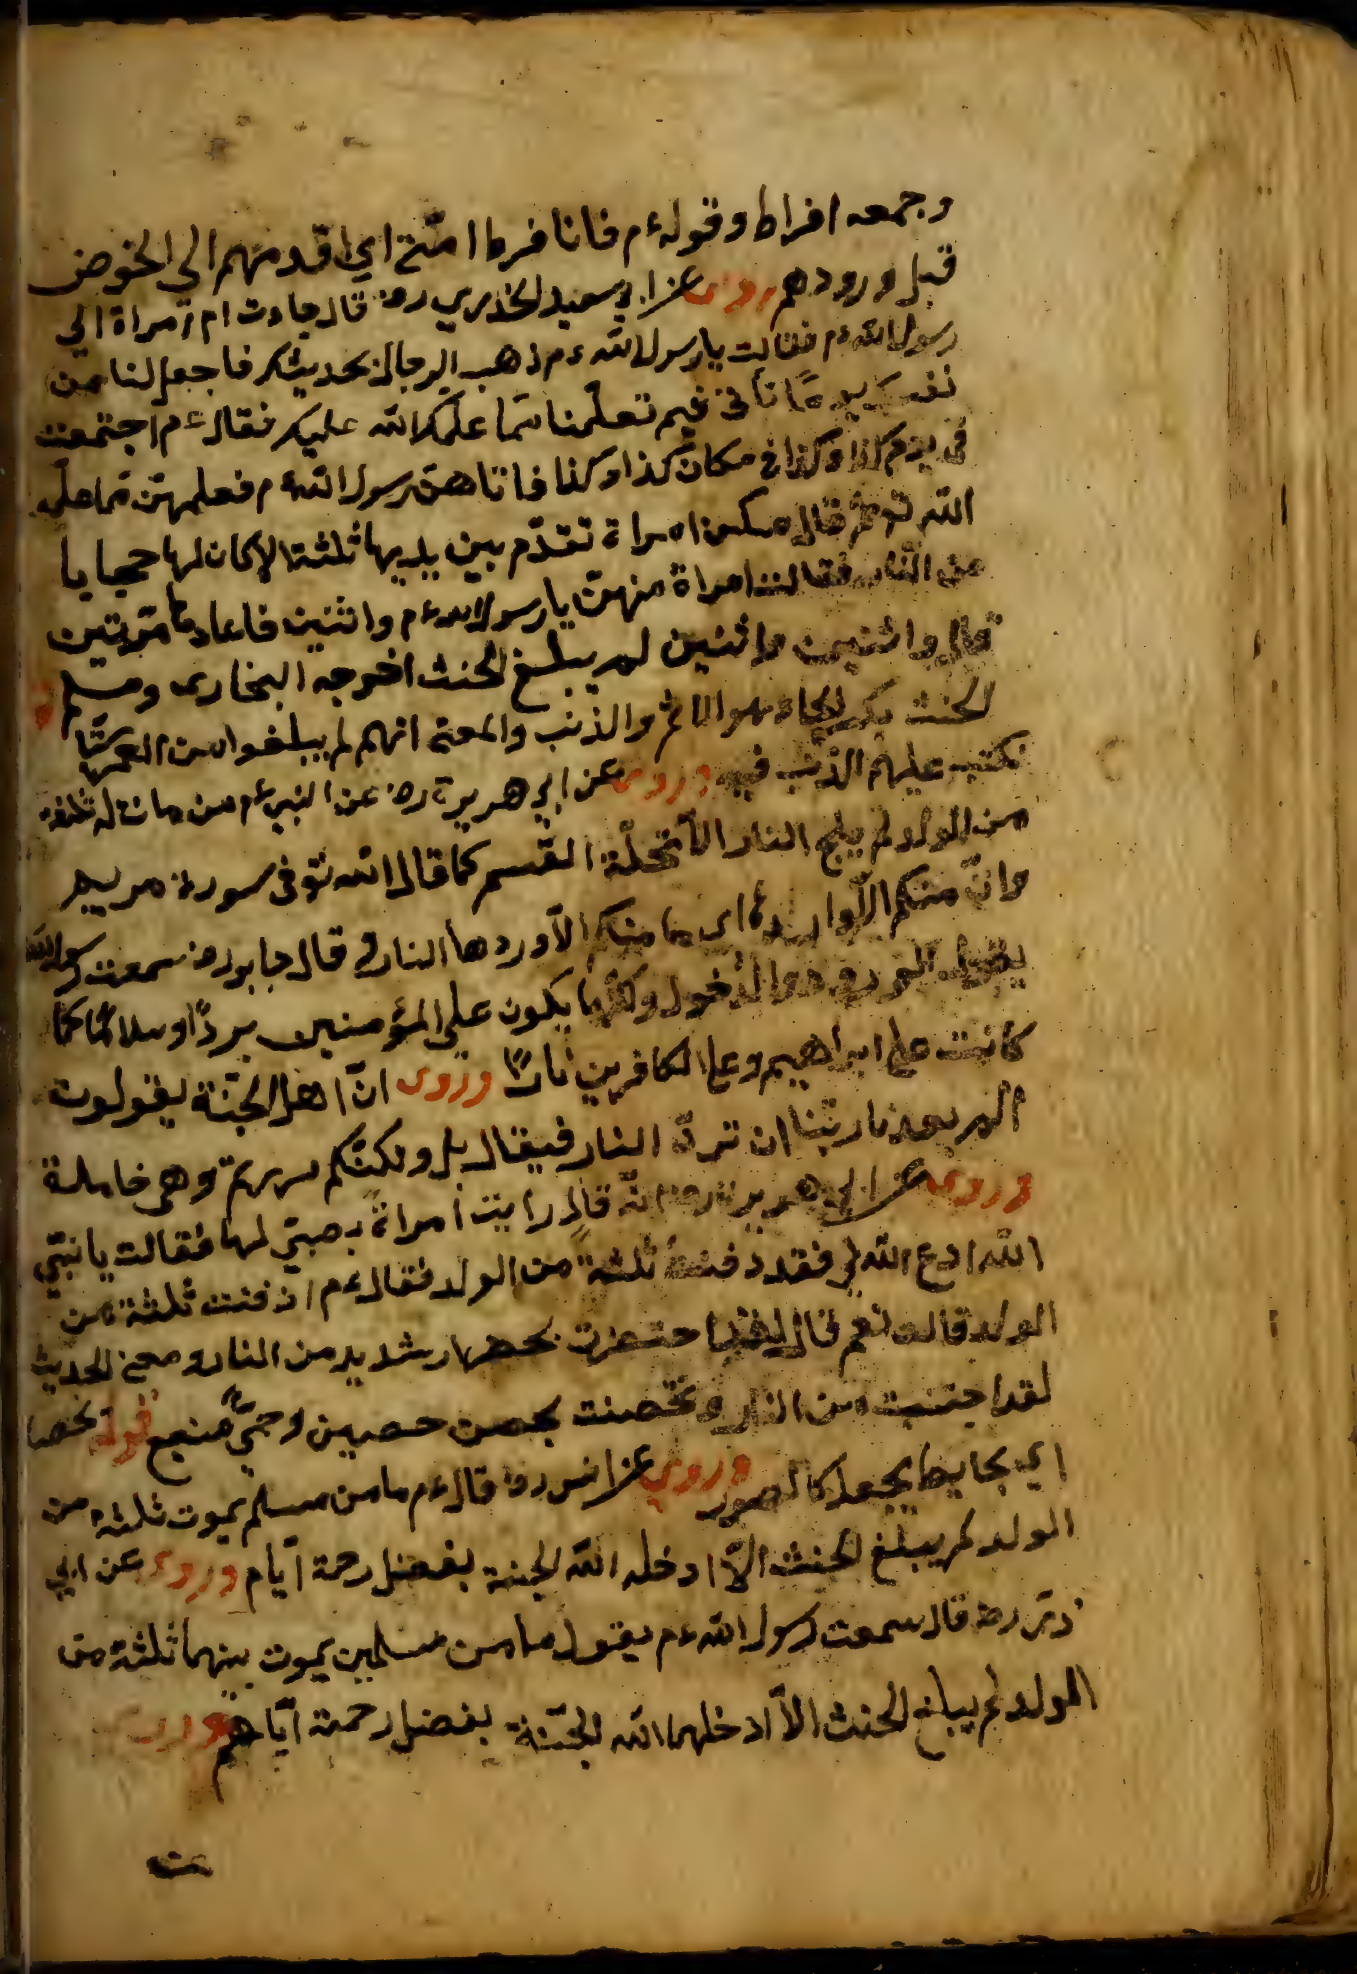 وجمعه افراط وقوله ءم فانا فرط امتى اي اقدمهم الى الخوض
قبل ورودهم روى عن ابي سعيد الخدري رض قال جاءت امراة الى
رسول الله ءم فقالت يا رسول الله ءم ذهب الرجال بحديثك فاجعل لنا من
نفسك يوما نأتى فيه تعلمنا مما علمك الله عليك فقال ءم اجتمعت
فى يوم كذا وكذا فى مكان كذا وكذا فاتاهن رسول الله ءم فعلمهن مما علمه
الله ثم قال منكن امراة تقدم بين يديها ثلثة الا كان لها حجابا
من النار فقالت امراة منهن يا رسول الله ءم واثنين فاعادها مرتين
قال واثنين واثنين لم يبلغ الحنث اخرجه البخارى ومسلم
الحنث بكسر الحاء هو الاثم والذنب والمعنى انهم لم يبلغوا سن العمر
تكتب عليهم الذنب فيه وروى عن ابي هريرة رض عن النبي ءم من مات له ثلثة
من الولد لم يلج النار الا تحلة القسم كما قال الله تع فى سورة مريم
وان منكم الا واردها اي ما منكم الا وردها النار قال جابر رض سمعت رسول الله
يقول الورود هو الدخول يكون على المؤمنين بردا وسلاما كما
كانت على ابراهيم وعلى الكافرين نارا وروى ان اهل الجنة يقولون
الم يعدنا ربنا ان نرد النار فيقال بل ولكنكم مررتم وهى خامدة
وروى عن ابي هريرة رض انه قال رايت امراة بصبى لها فقالت يا نبى
الله ادع الله لى فقد دفنت ثلثة من الولد فقال ءم ادفنت ثلثة من
الولد قالت نعم قال لقد احتضرت بحصار شديد من النار ومعنى الحديث
لقد اجتنبت من النار وتحصنت بحصن حصين وحمى منيع قوله بحصار
اي بحايط يجعل كالسور وروى عن انس رض قال ءم ما من مسلم يموت ثلثة من
الولد لم يبلغ الحنث الا ادخله الله الجنة بفضل رحمة ايام وروى عن ابي
ذر رض قال سمعت رسول الله ءم يقول ما من مسلمين يموت بينهما ثلثة من
الولد لم يبلغ الحنث الا ادخلهما الله الجنة بفضل رحمة اياهم وروى
عن